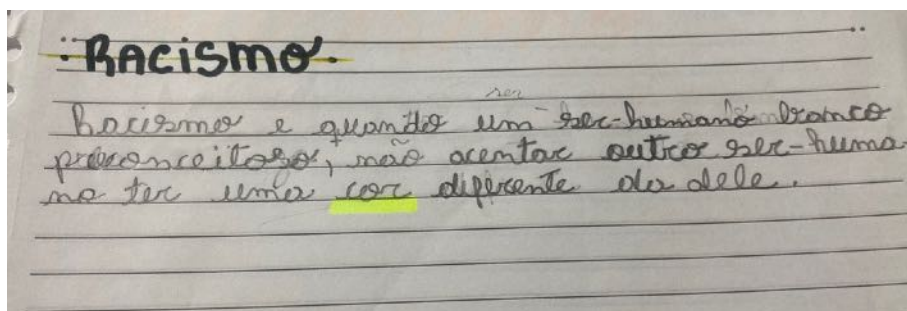 RACISMO.
ser
Racismo e quando um ser-humano branco
preconceitoso, não acentar outro ser-huma
no ter uma cor diferente da dele.